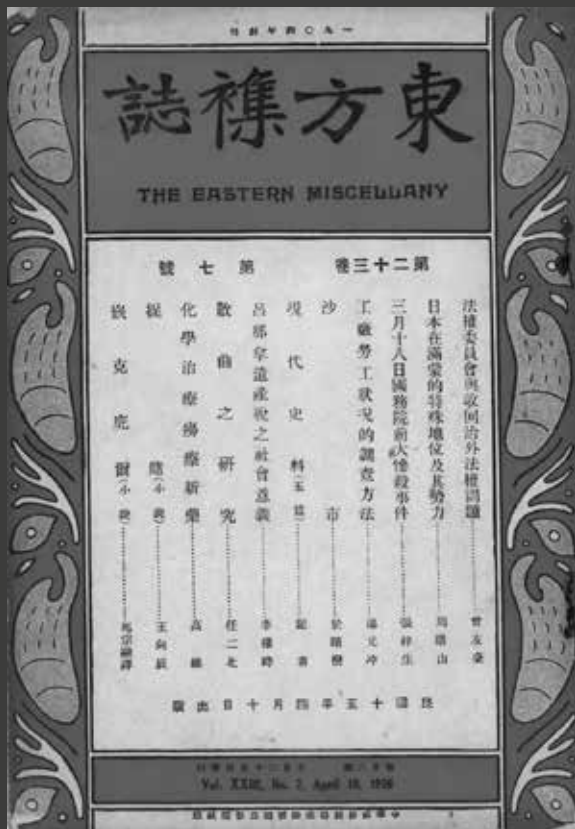 一九〇四年創刊
東方雜誌
THE EASTERN MISCELLANY
第二十三卷 第七號
法權委員會與收回治外法權問題 曾友豪
日本在滿蒙的特殊地位及其勢力 周鯁山
三月十八日國務院前大慘殺事件 張梓生
工廠勞工狀況的調查方法
沙市 於曙巒
現代史料
呂那拿遺產稅之社會意義 李權時
散曲之研究 任二北
化學治療勝療新藥 高
(小說) 王向辰
嵌克庇爾(小說) 馬宗融譯
民國十五年四月十日出版
Vol. XXIII, No. 7, April 10, 1926